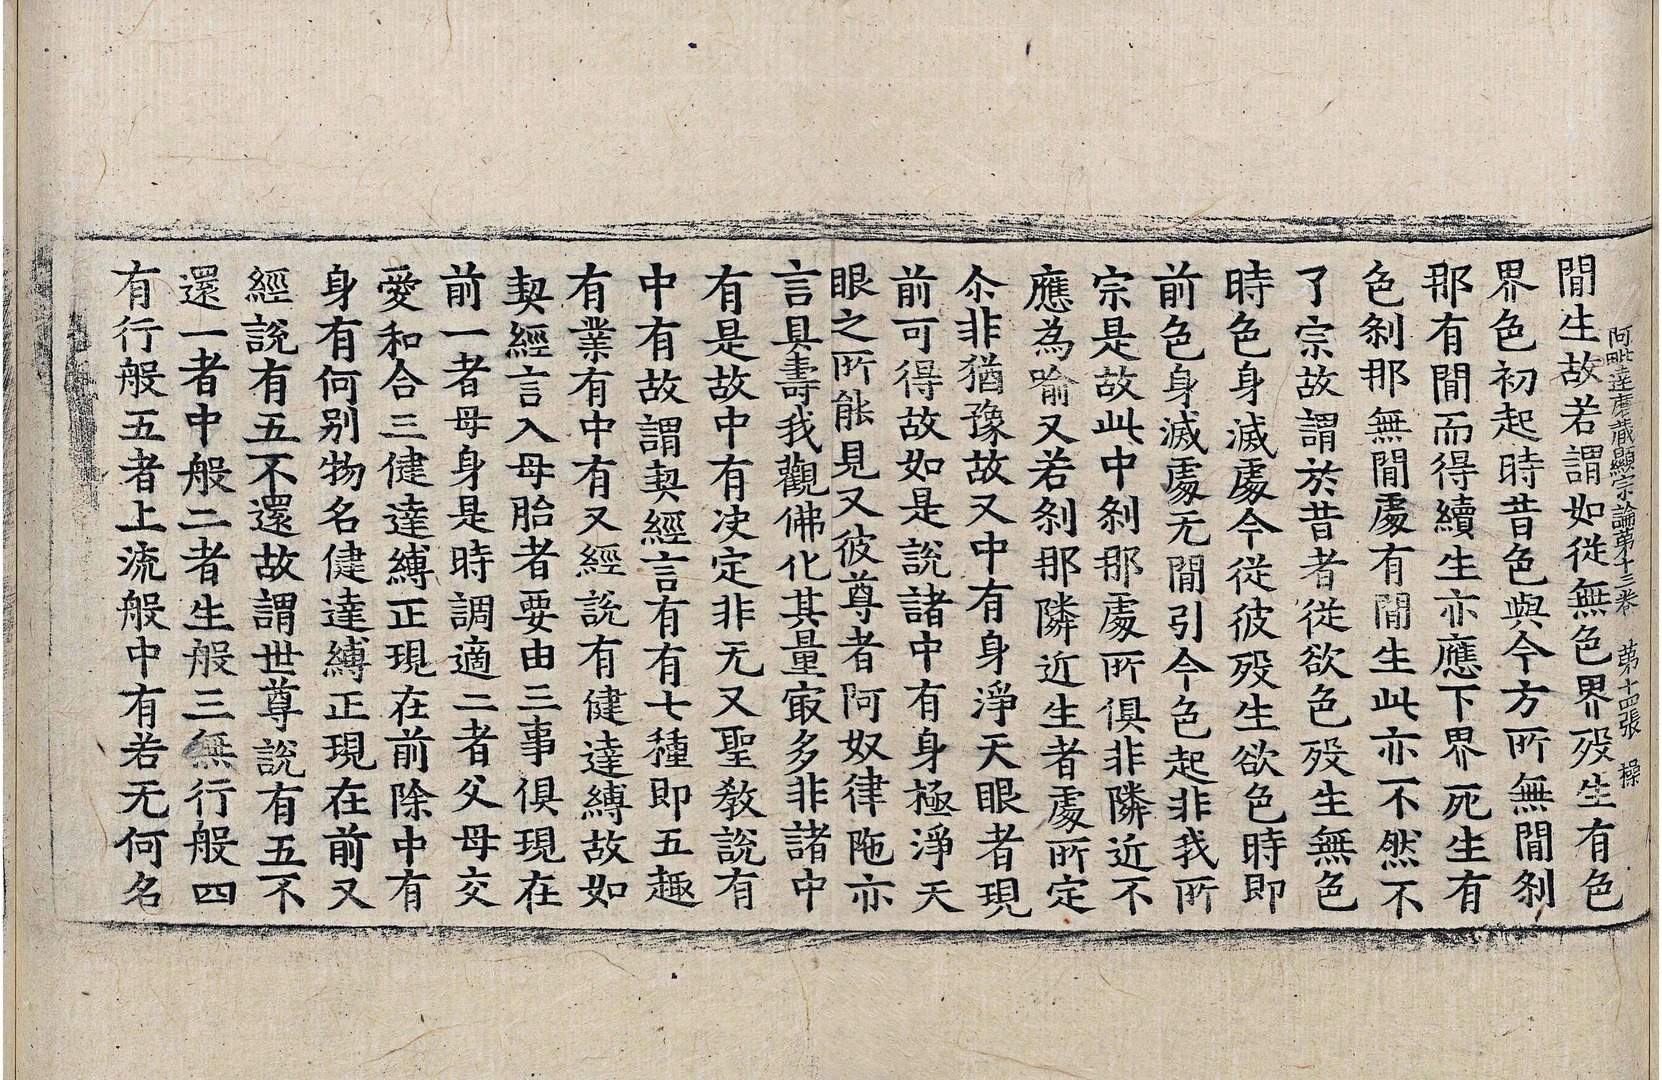 阿毗達磨藏顯宗論第十三卷　第十四張　操
閒生故若謂如從無色界歿生有色
界色初起時昔色與今方所無閒剎
那有閒而得續生亦應下界死生有
色剎那無閒處有閒生此亦不然不
了宗故謂於昔者從欲色歿生無色
時色身滅處今從彼歿生欲色時即
前色身滅處无閒引今色起非我所
宗是故此中剎那處所俱非隣近不
應為喻又若剎那隣近生者處所定
尒非猶豫故又中有身淨天眼者現
前可得故如是說諸中有身極淨天
眼之所能見又彼尊者阿奴律陁亦
言具壽我觀佛化其量㝡多非諸中
有是故中有决定非无又聖教說有
中有故謂契經言有有七種即五趣
有業有中有又經說有健達縛故如
契經言入母胎者要由三事俱現在
前一者母身是時調適二者父母交
愛和合三健達縛正現在前除中有
身有何別物名健達縛正現在前又
經說有五不還故謂世尊說有五不
還一者中般二者生般三無行般四
有行般五者上流般中有若无何名